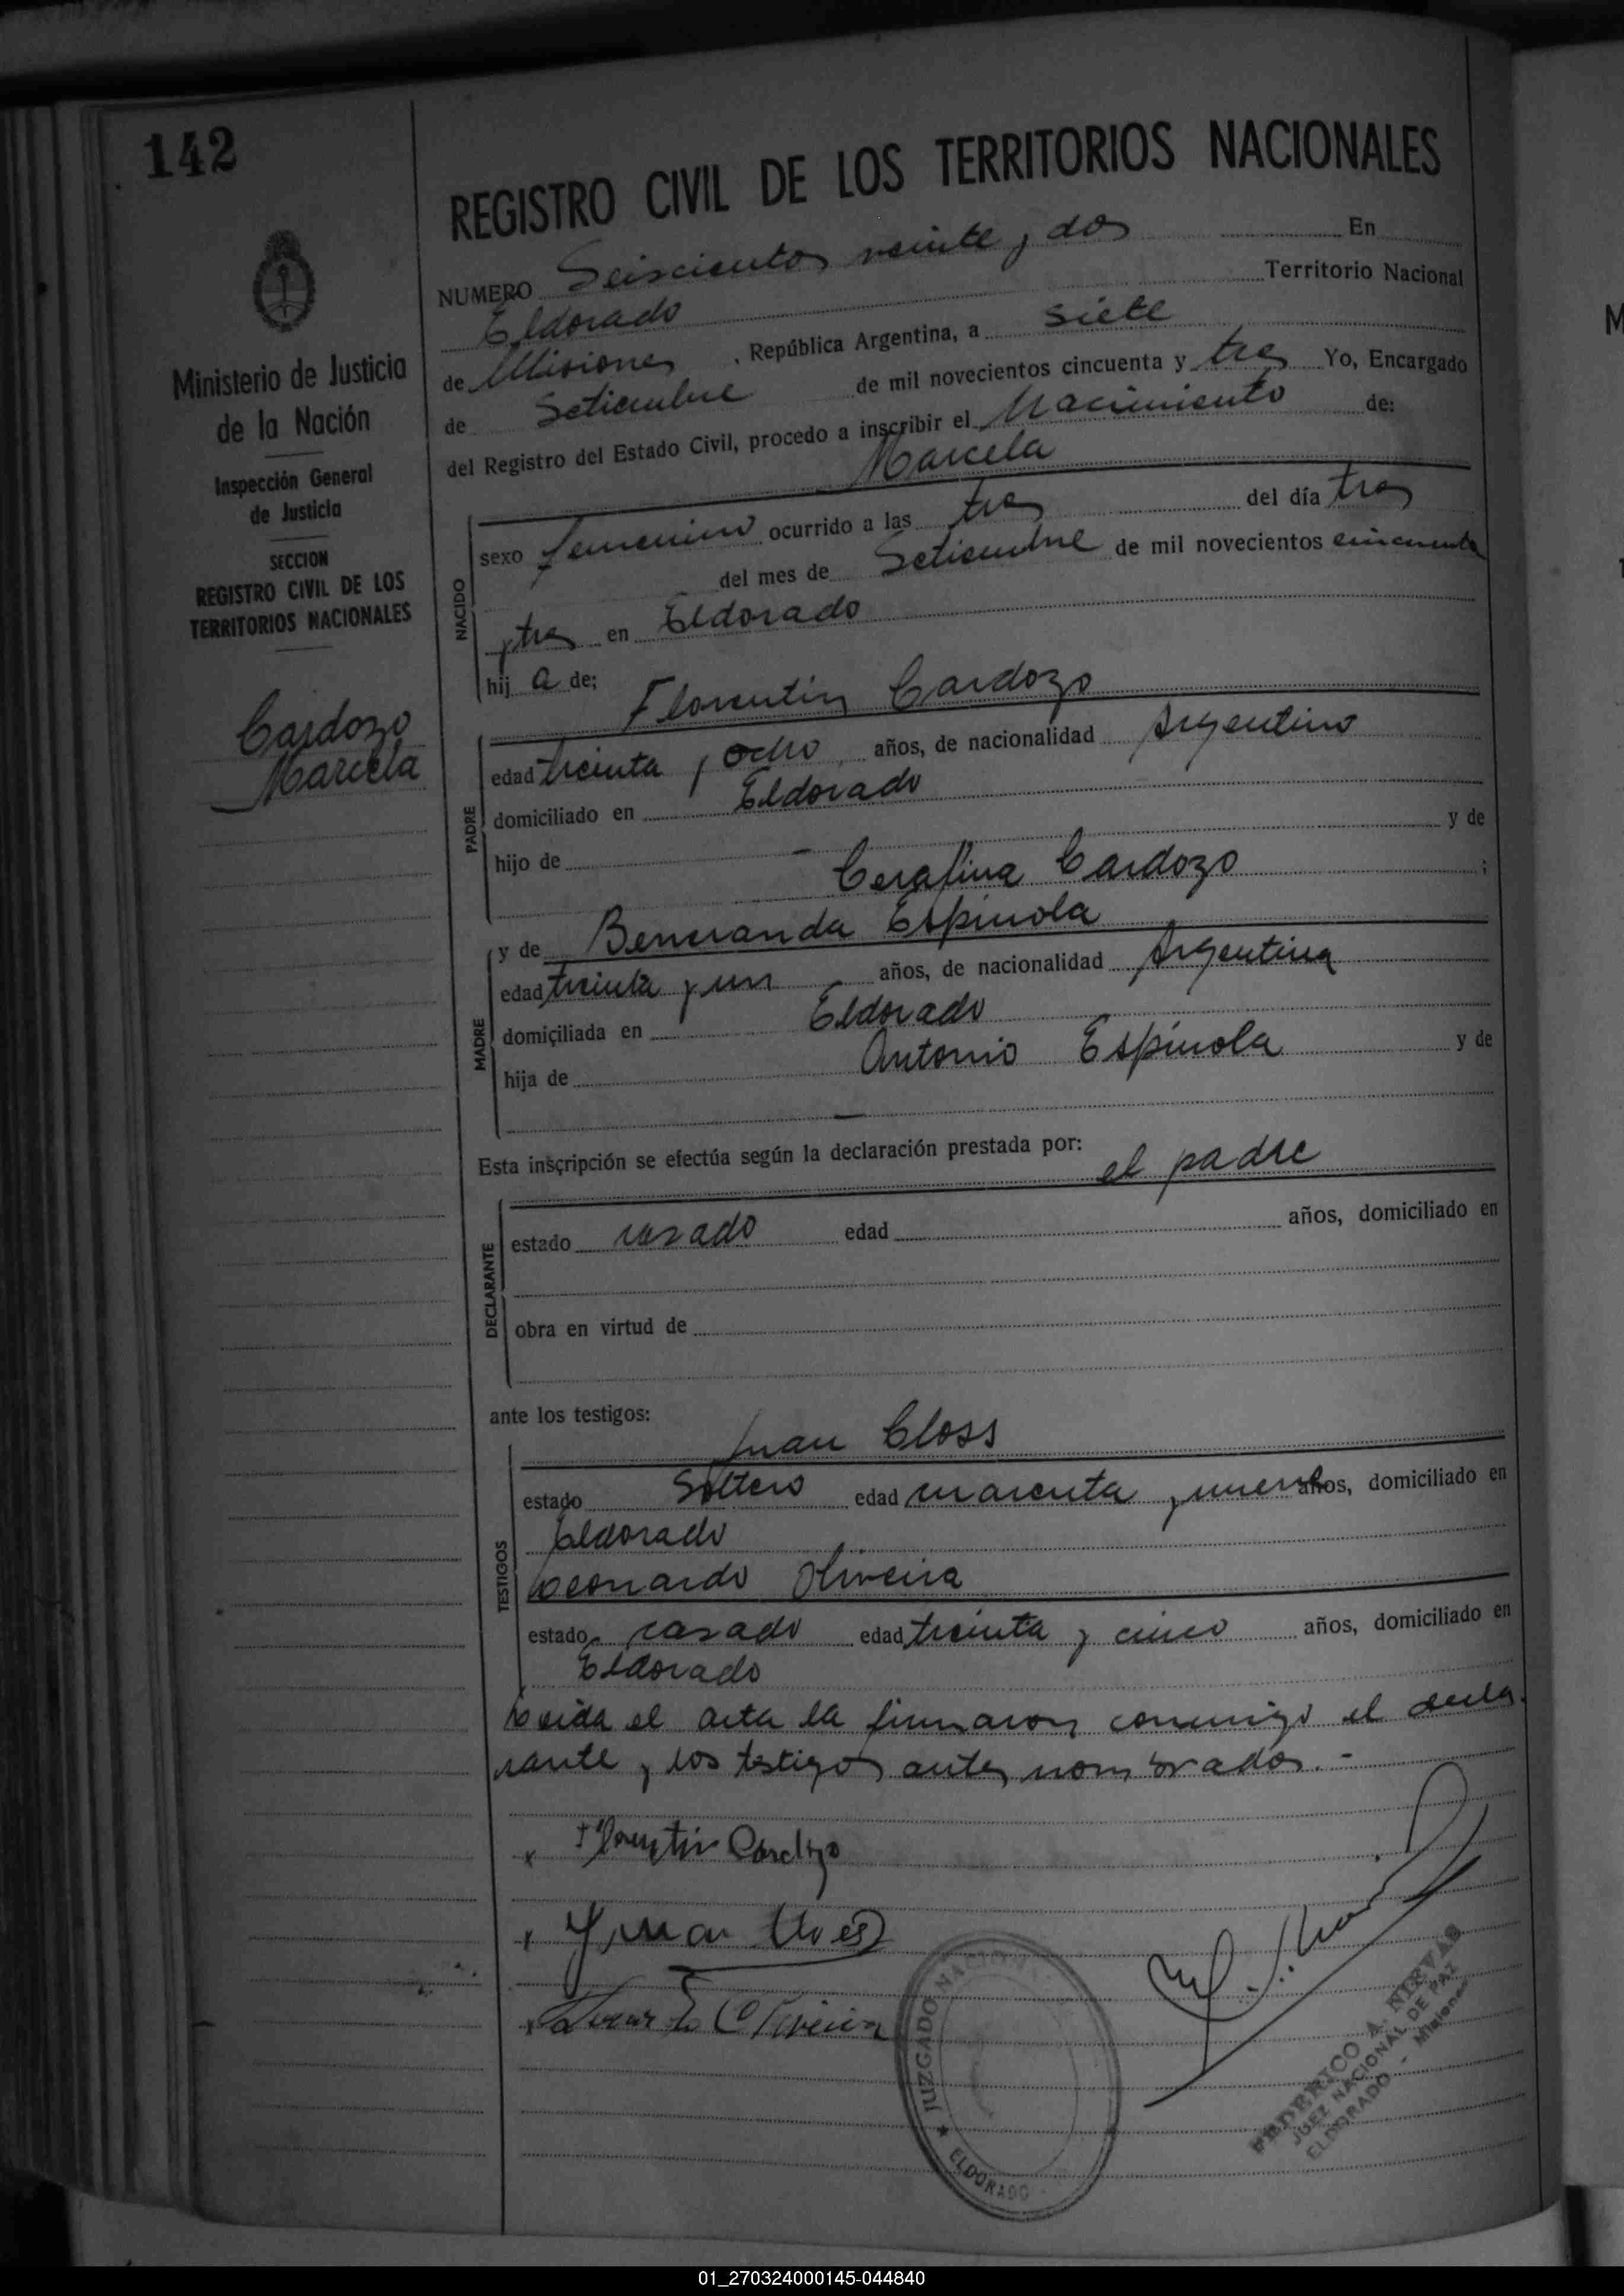 142
Ministerio de Justicia
de la Nación
Inspección General
de Justicia
SECCION
REGISTRO CIVIL DE LOS
TERRITORIOS NACIONALES
Cardozo
Marcela
REGISTRO CIVIL DE LOS TERRITORIOS NACIONALES
NUMERO Seiscientos veinte y dos En
Eldorado Territorio Nacional
de Misiones, República Argentina, a siete
de Setiembre de mil novecientos cincuenta y tres Yo, Encargado
del Registro del Estado Civil, procedo a inscribir el Nacimiento de:
Marcela
NACIDO
sexo femenino ocurrido a las tres del día tres
del mes de Setiembre de mil novecientos cincuenta
y tres en Eldorado
hij a de:
Florentin Cardozo
PADRE
edad treinta y ocho años, de nacionalidad Argentino
domiciliado en Eldorado
hijo de - y de
Cerafina Cardozo ;
y de Beneranda Espinola
MADRE
edad treinta y un años, de nacionalidad Argentina
domiciliada en Eldorado
hija de Antonio Espinola y de
—
Esta inscripción se efectúa según la declaración prestada por:
el padre
DECLARANTE
estado casado edad años, domiciliado en
obra en virtud de
ante los testigos:
Juan Closs
TESTIGOS
estado Soltero edad cuarenta y nueve años, domiciliado en
Eldorado
Leonardo Oliveira
estado casado edad treinta y cinco años, domiciliado en
Eldorado
Leida el acta la firmaron conmigo el decla-
rante y los testigos antes nombrados.-
x Florentin Cardozo
x Juan Closs
x Oliveira
JUZGADO NACION
★ ELDORADO
FEDERICO A. NIEVAS
JUEZ NACIONAL DE PAZ
ELDORADO - Misiones
01_270324000145-044840